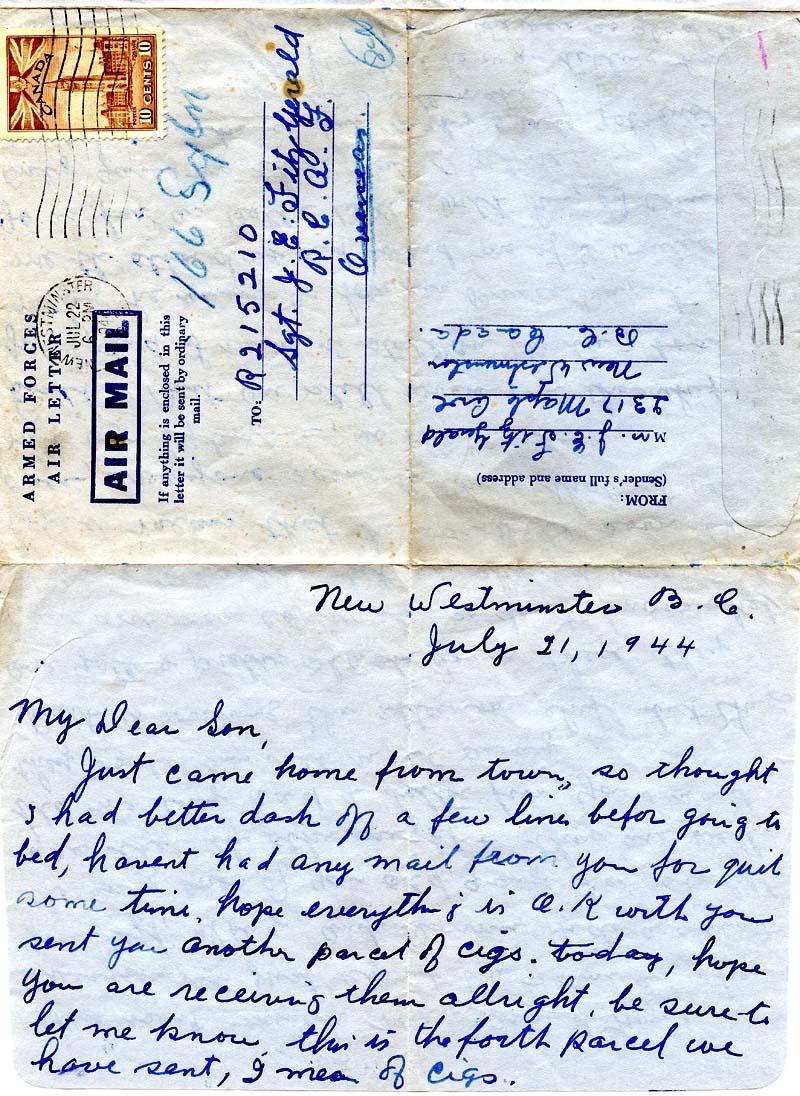 CANADA
10 CENTS 10
ARMED FORCES
AIR LETTER
NEW WESTMINSTER
JUL 22
AIR MAIL
If anything is enclosed in this
letter it will be sent by ordinary
mail.
166 Sqdn
TO: R215210
Sgt. J. E. FitzGerald
R. C. A. F.
Overseas.
FROM:
(Sender's full name and address)
Mrs. J. E. FitzGerald
2317 Maple Cres
New Westminster
B. C. Canada.
New Westminster B. C.
July 21, 1944
My Dear Son,
Just came home from town, so thought
I had better dash off a few lines befor going to
bed, havent had any mail from you for quit
some time, hope everything is O.K with you
sent you another parcel of cigs. today, hope
you are receiving them allright, be sure to
let me know, this is the forth parcel we
have sent, I mean of cigs.